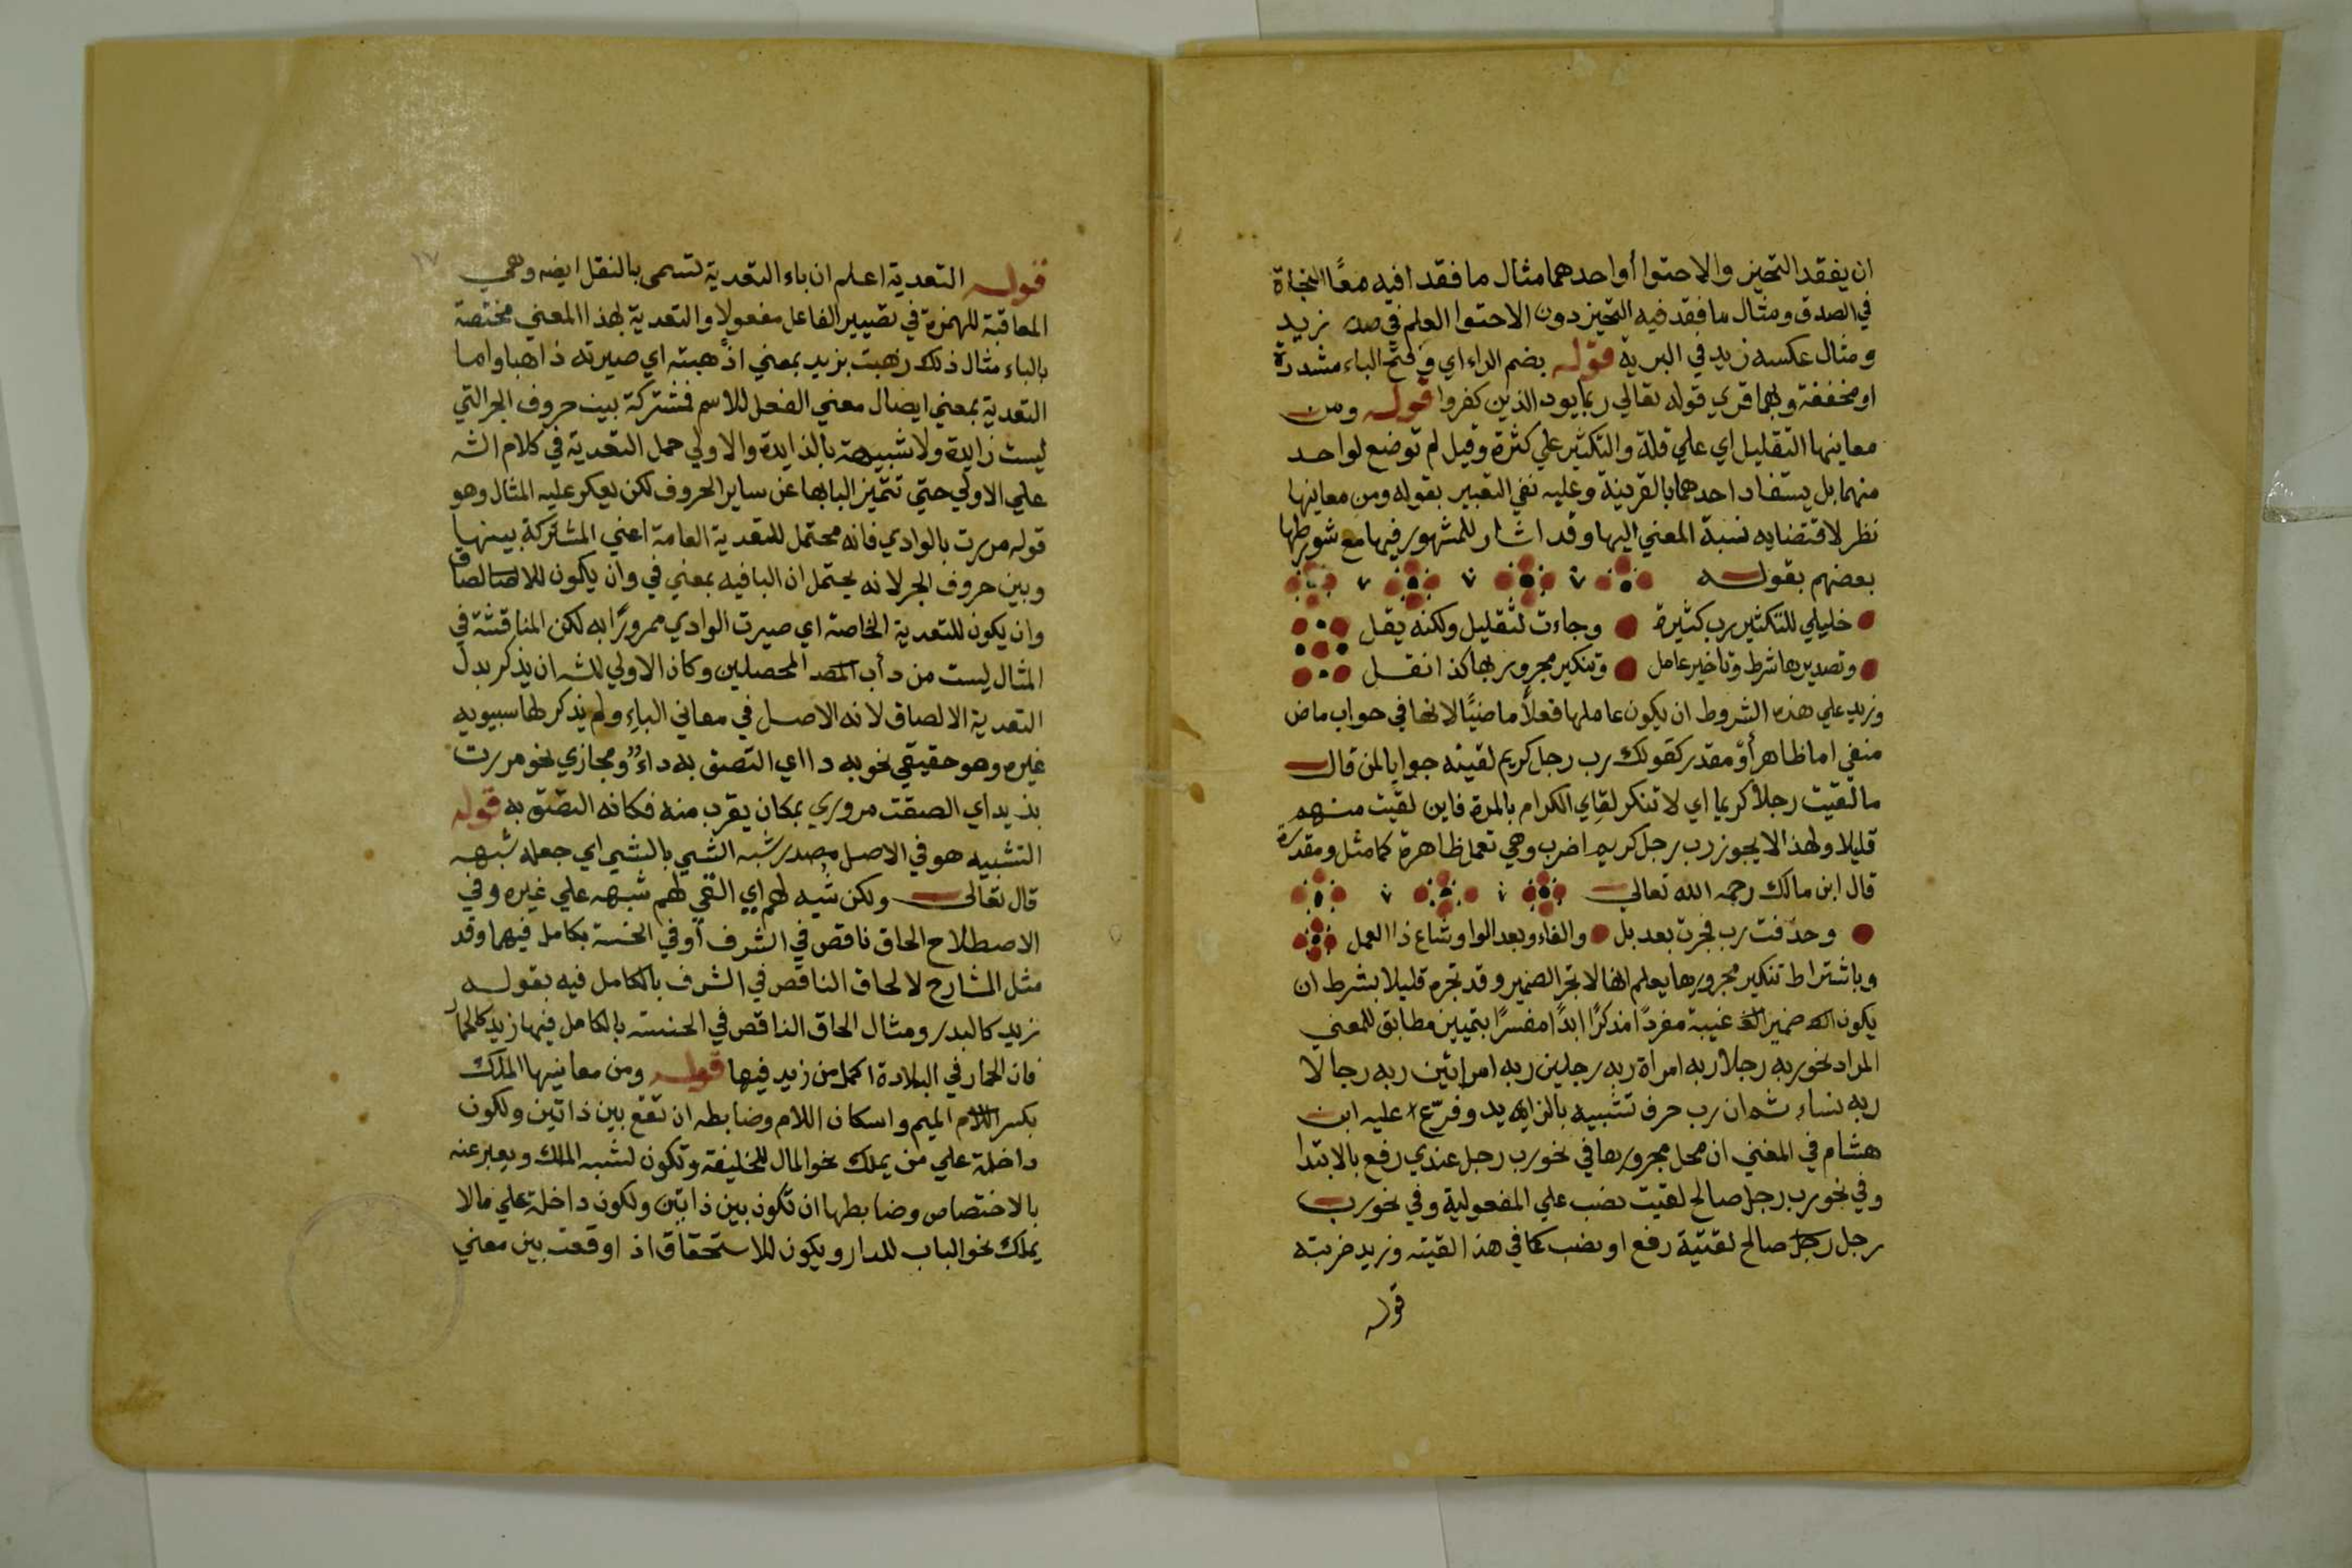 ان يفقد التحيز والاحتوا أو احدهما مثال ما فقدا فيه معًا النجاة
في الصدق ومثال ما فقد فيه التحيز دون الاحتوا العلم في صدر زيد
ومثال عكسه زيد في البرية قوله بضم الراء اي وفتح الباء مشددة
او مخففة وبهما قري قوله تعالي ربما يود الذين كفروا قوله ومن
معاينها التقليل اي علي قلة والتكثير علي كثرة وقيل لم توضع لواحد
منهما بل يستفاد احدهما بالقرينة وعليه نفي التعبير بقوله ومن معاينها
نظر لاقتضايه نسبة المعني اليها وقد اشار للمشهور فيها مع شروطها
بعضهم بقوله
خليلي للتكثير رب كثيرة وجاءت لتقليل ولكنه يقل
وتصديرها شرط وتاخير عامل وتنكير مجرور بها كذا نقل
وزيد علي هذه الشروط ان يكون عاملها فعلاً ماضيًا لانها في جواب ماض
منفي اما ظاهر أو مقدر كقولك رب رجل كريم لقيته جوابا لمن قال
ما لقيت رجلاً كريما اي لا تنكر لقاي الكرام بالمرة فاين لقيت منهم
قليلا ولهذا لا يجوز رب رجل كريم اضرب وهي تعمل ظاهرة كما مثل ومقدرة
قال ابن مالك رحمه الله تعالي
وحذفت رب فجرت بعد بل والفاء وبعد الواو شاع ذا العمل
وباشتراط تنكير مجرورها يعلم انها لا تجر الضمير وقد تجره قليلا بشرط ان
يكون ضمير غيبة مفردًا مذكرًا ابدًا مفسرًا بتمييز مطابق للمعني
المراد نحو ربه رجلا ربه امراة ربه رجلين ربه امراتين ربه رجالا
ربه نساء ثم ان رب حرف تشبيه بالزايد وفرّع عليه ابن
هشام في المغني ان محل مجرورها في نحو رب رجل عندي رفع بالابتدا
وفي نحو رب رجل صالح لقيت نصب علي المفعولية وفي نحو رب
رجل رجل صالح لقيتة رفع او نصب كما في هذا لقيته وزيد ضربته
قوله
١٧
قوله التعدية اعلم ان باء التعدية تسمى بالنقل ايضه وهي
المعاقبة للهمزة في تصيير الفاعل مفعولا والتعدية بهذا المعني مختصة
بالباء مثال ذلك ذهبت بزيد بمعني اذهبته اي صيرته ذاهبا واما
التعدية بمعني ايصال معني الفعل للاسم فمشتركة بين حروف الجر التي
ليست زايدة ولا شبيهة بالزايدة والاولي حمل التعدية في كلام الشه
علي الاولي حتي تتميز البا بها عن ساير الحروف لكن يعكر عليه المثال وهو
قوله مررت بالوادي فانه محتمل للتعدية العامة اعني المشتركة بينها
وبين حروف الجر لانه يحتمل ان البا فيه بمعني في وان يكون للالصاق
وان يكون للتعدية الخاصة اي صيرت الوادي ممرورًا به لكن المناقشة في
المثال ليست من دأب المحصلين وكان الاولي للشه ان يذكر بدل
التعدية الالصاق لانه الاصل في معاني الباء ولم يذكر لها سيبويه
غيره وهو حقيقي نحو به داء اي التصق به داء ومجازي نحو مررت
بزيد اي الصقت مروري بمكان يقرب منه فكانه التصق به قوله
التشبيه هو في الاصل مصدر شبه الشي بالشي اي جعله شبهه
قال تعالى ولكن شُبه لهم اي القي لهم شبهه علي غيره وفي
الاصطلاح الحاق ناقص في الشرف أو في الخسة بكامل فيهما وقد
مثل الشارح لالحاق الناقص في الشرف بالكامل فيه بقوله
زيد كالبدر ومثال الحاق الناقص في الخسة بالكامل فيها زيد كالحمار
فان الحمار في البلادة اكمل من زيد فيها قوله ومن معانيها الملك
بكسر الميم واسكان اللام وضابطه ان تقع بين ذاتين وتكون
داخلة علي من يملك نحو المال للخليفة وتكون لشبه الملك ويعبر عنه
بالاختصاص وضابطها ان تكون بين ذاتين وتكون داخلة علي مالا
يملك نحو الباب للدار ويكون للاستحقاق اذا وقعت بين معني